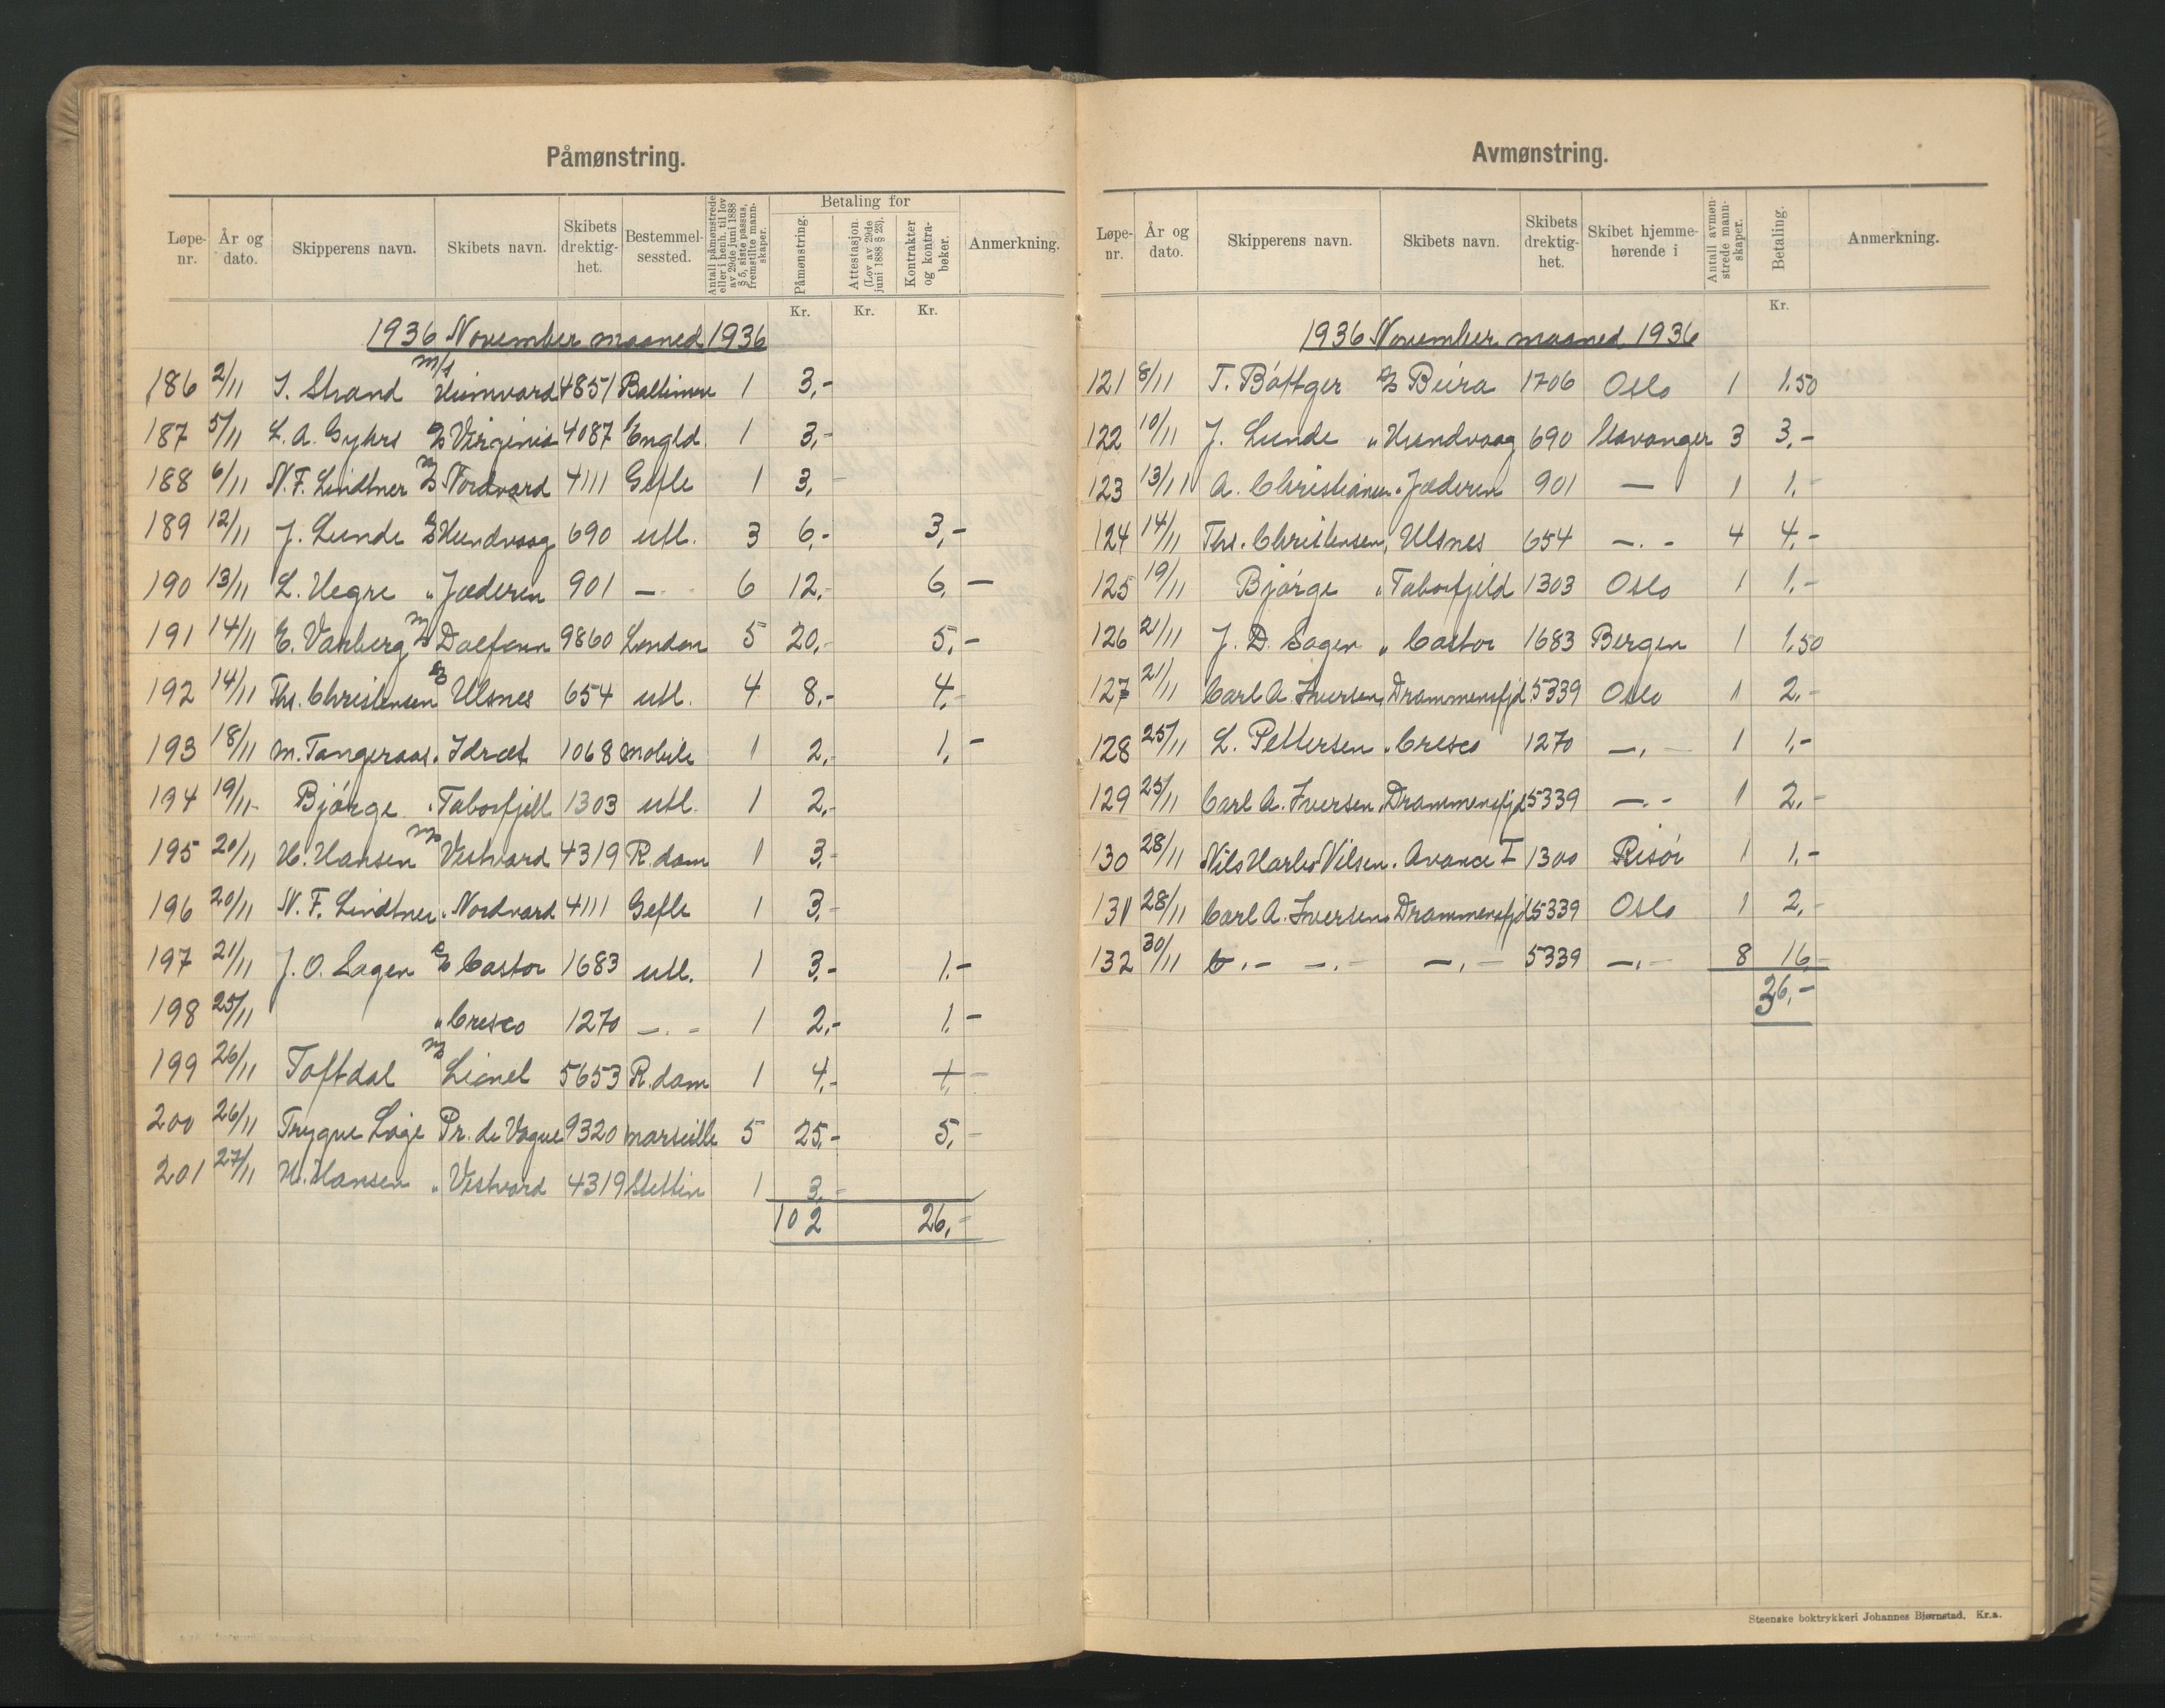 Påmønstring.
Løpe-nr. År og dato. Skipperens navn. Skibets navn. Skibets drektig-het. Bestemmel-sessted. Antall påmønstrede eller i henh. til lov av 29de juni 1888 § 5, siste passus, fremstilte mann-skaper. Betaling for Påmønstring. Attestasjon. (Lov av 29de juni 1888 § 23). Kontrakter og kontra-bøker. Anmerkning.
Kr. Kr. Kr.
1936 November maaned 1936
186 2/11 T. Strand m/s Heimvard 4851 Baltimore 1 3,-
187 5/11 L. A. Gyhrs Virginia 4087 Engld. 1 3,-
188 6/11 N. F. Lindtner Nordvard 4111 Gefle 1 3,
189 12/11 J. Lunde Hundvaag 690 utl. 3 6,- 3,-
190 13/11 L. Hegre " Jæderen 901 — 6 12,- 6,-
191 14/11 E. Varberg Dalfonn 9860 London 5 20,- 5,-
192 14/11 Ths. Christensen Ulsnes 654 utl. 4 8,- 4,-
193 18/11 M. Tangeraas " Idræt 1068 Mobile 1 2,- 1,-
194 19/11 Bjørge " Taborfjell 1303 utl. 1 2,-
195 20/11 H. Hansen Vestvard 4319 R.dam 1 3,-
196 20/11 N. F. Lindtner " Nordvard 4111 Gefle 1 3,-
197 21/11 J. O. Sagen Castor 1683 utl. 1 3,- 1,-
198 25/11 " Cresco 1270 —.- 1 2,- 1,-
199 26/11 Toftdal Lionel 5653 R.dam 1 4,-
200 26/11 Trygve Løge Pr. de Vogue 9320 Marseille 5 25,- 5,-
201 27/11 H. Hansen " Vestvard 4319 Stettin 1 3,-
102 26,-
Avmønstring.
Løpe-nr. År og dato. Skipperens navn. Skibets navn. Skibets drektig-het. Skibet hjemme-hørende i Antall avmøn-strede mann-skaper. Betaling. Anmerkning.
Kr.
1936 November maaned 1936
121 8/11 T. Bøttger Beira 1706 Oslo 1 1,50
122 10/11 J. Lunde " Hundvaag 690 Stavanger 3 3,-
123 13/11 A. Christiansen " Jæderen 901 — 1 1,-
124 14/11 Ths. Christensen " Ulsnes 654 —.- 4 4,-
125 19/11 Bjørge " Taborfjeld 1303 Oslo 1 1,-
126 21/11 J. D. Sagen " Castor 1683 Bergen 1 1,50
127 21/11 Carl A. Iversen " Drammensfjd 5339 Oslo 1 2,-
128 25/11 L. Pettersen " Cresco 1270 —.- 1 1,-
129 25/11 Carl A. Iversen " Drammensfjd 5339 —.- 1 2,-
130 28/11 Nils Harbo Nilsen " Avance I 1300 Risör 1 1,-
131 28/11 Carl A. Iversen " Drammensfjd 5339 Oslo 1 2,-
132 30/11 —.- —.- —.- 5339 —.- 8 16,-
36,-
Steenske boktrykkeri Johannes Bjørnstad. Kr.a.